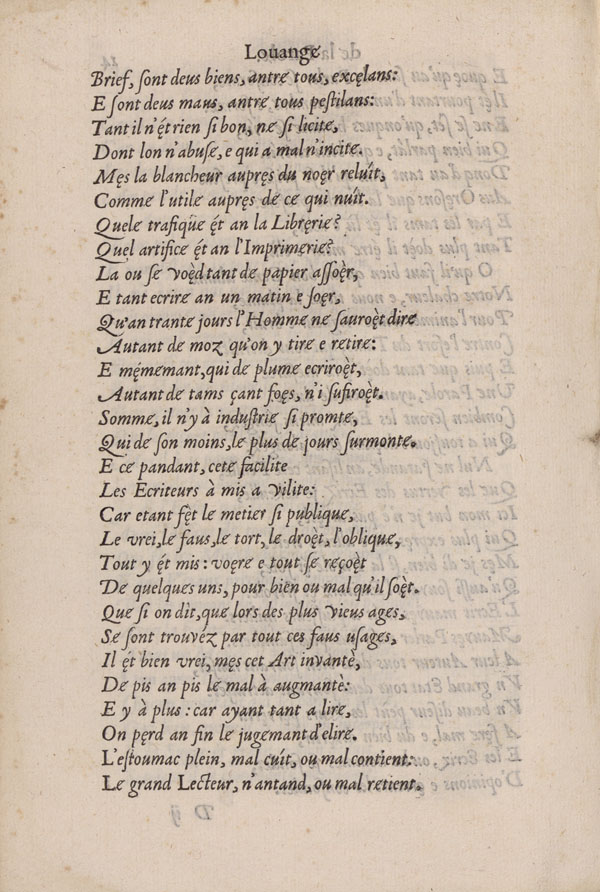 Louange
Brief, ſont deus biens, antre tous, excęlans:
E ſont deus maus, antre tous peſtilans:
Tant il n'ęt rien ſi bon, ne ſi licite,
Dont lon n'abuſe, e qui a mal n'incite.
Męs la blancheur aupręs du noęr reluìt,
Comme l'utile aupręs de ce qui nuìt.
Quele trafique ęt an la Libręrie?
Quel artifice ęt an l'Imprimerie?
La ou ſe voęd tant de papier aſſoęr,
E tant ecrire an un matin e ſoęr,
Qu'an trante jours l'Homme ne ſauroęt dire
Autant de moz qu'on y tire e retire:
E męmemant, qui de plume ecriroęt,
Autant de tams çant foęs, n'i ſufiroęt.
Somme, il n'y à induſtrie ſi promte,
Qui de ſon moins, le plus de jours ſurmonte.
E ce pandant, cete facilite
Les Ecriteurs à mis a vilite:
Car etant fęt le metier ſi publique,
Le vrei, le faus, le tort, le droęt, l'oblique,
Tout y ęt mis: voęre e tout ſe reçoęt
De quelques uns, pour bien ou mal qu'il ſoęt.
Que ſi on dìt, que lors des plus vieus ages,
Se ſont trouvèz par tout ces faus uſages,
Il ęt bien vrei, męs cet Art invantè,
De pis an pis le mal à augmantè:
E y à plus: car ayant tant a lire,
On pęrd an fin le jugemant d'elire.
L'eſtoumac plein, mal cuìt, ou mal contient:
Le grand Lecteur, n'antand, ou mal retient.